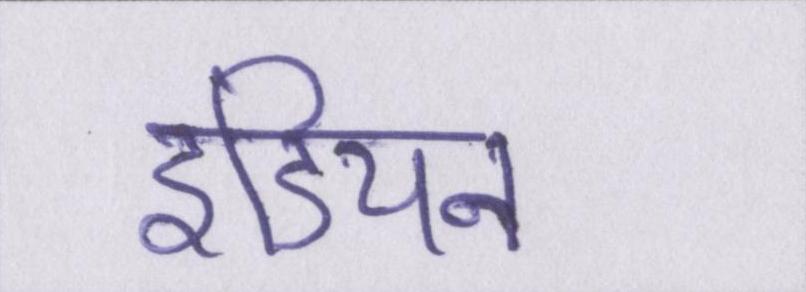 इडियन